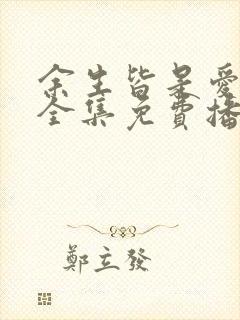 余生皆是愛
全集免費播
鄭立發